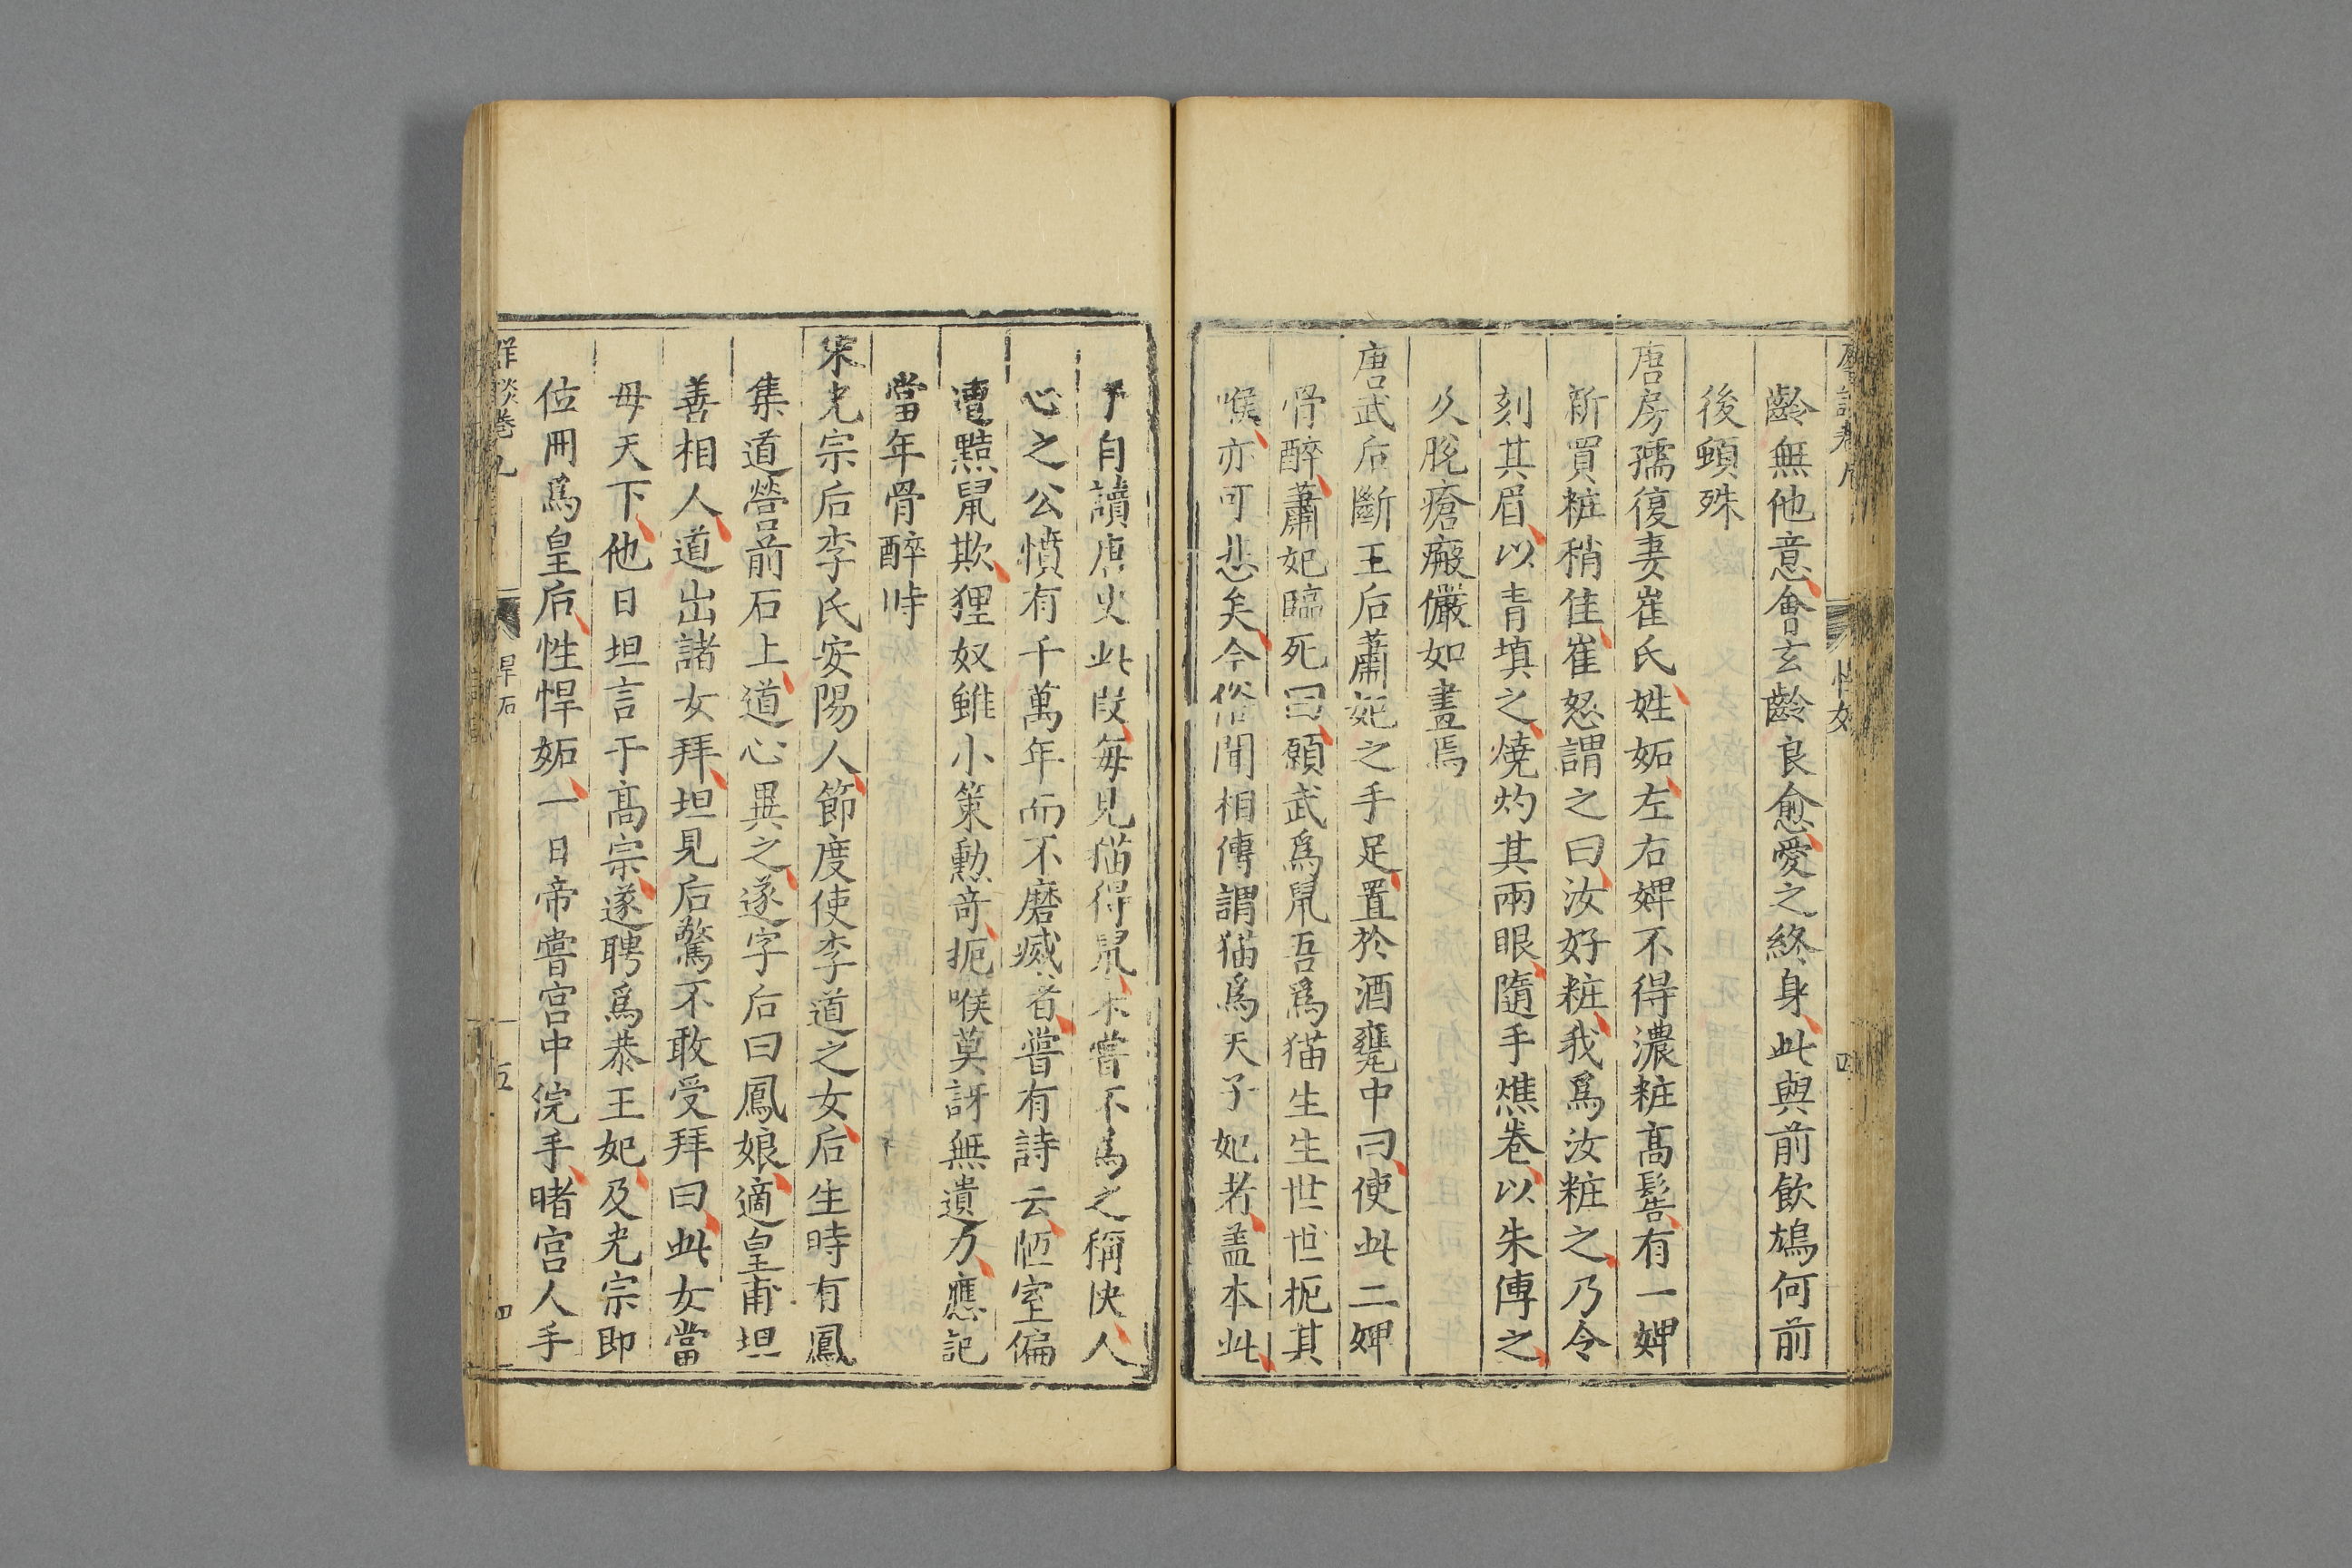 齡無他意會玄齡良愈愛之終身此與前飲鴆何前
後頓殊
唐房孺復妻崔氏姓妬左右婢不得濃粧髙髻有一婢
新買粧稍佳崔怒謂之曰汝好粧我爲汝粧之乃令
刻其眉以青填之燒灼其兩眼隨手燋卷以朱傅之
久脫瘡瘢儼如畫焉
唐武后斷王后蕭妃之手足置於酒甕中曰使此二婢
骨醉蕭妃臨死曰願武爲鼠吾爲猫生生世世扼其
喉亦可悲矣今俗閒相傳謂猫爲天子妃者盖本此
予自讀唐史此段每見猫得鼠未嘗不爲之稱快人
心之公憤有千萬年而不磨滅者嘗有詩云陋室偏
遭黠鼠欺狸奴雖小策勲奇扼喉莫訝無遺力應記
當年骨醉時
宋光宗后李氏安陽人節度使李道之女后生時有鳳
集道營前石上道心異之遂字后曰鳳娘適皇甫坦
善相人道出諸女拜坦見后驚不敢受拜曰此女當
母天下他日坦言于髙宗遂聘爲恭王妃及光宗即
位冊爲皇后性悍妬一日帝嘗宫中浣手睹宫人手
群談卷九
五